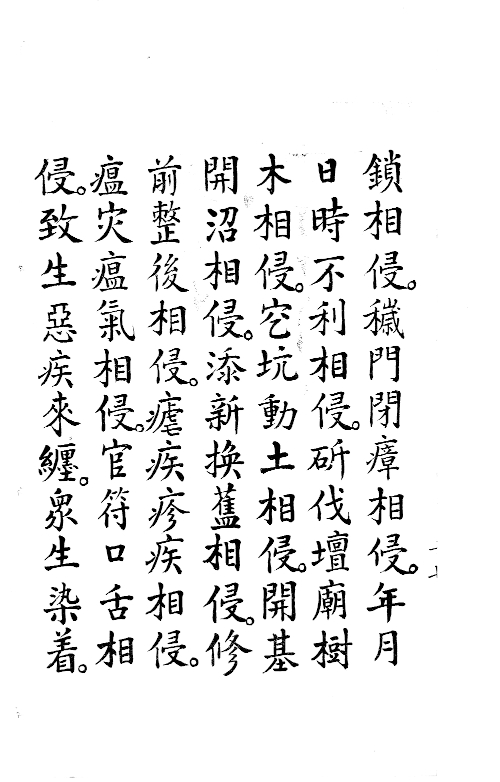 鎖相侵。穢門閉瘴相侵。年月
日時不利相侵。斫伐壇廟樹
木相侵。穵坑動土相侵。開基
開沼相侵。添新換舊相侵。修
前整後相侵。瘧疾疹疾相侵。
瘟灾瘟氣相侵。官符口舌相
侵。致生惡疾來纏。衆生染着。